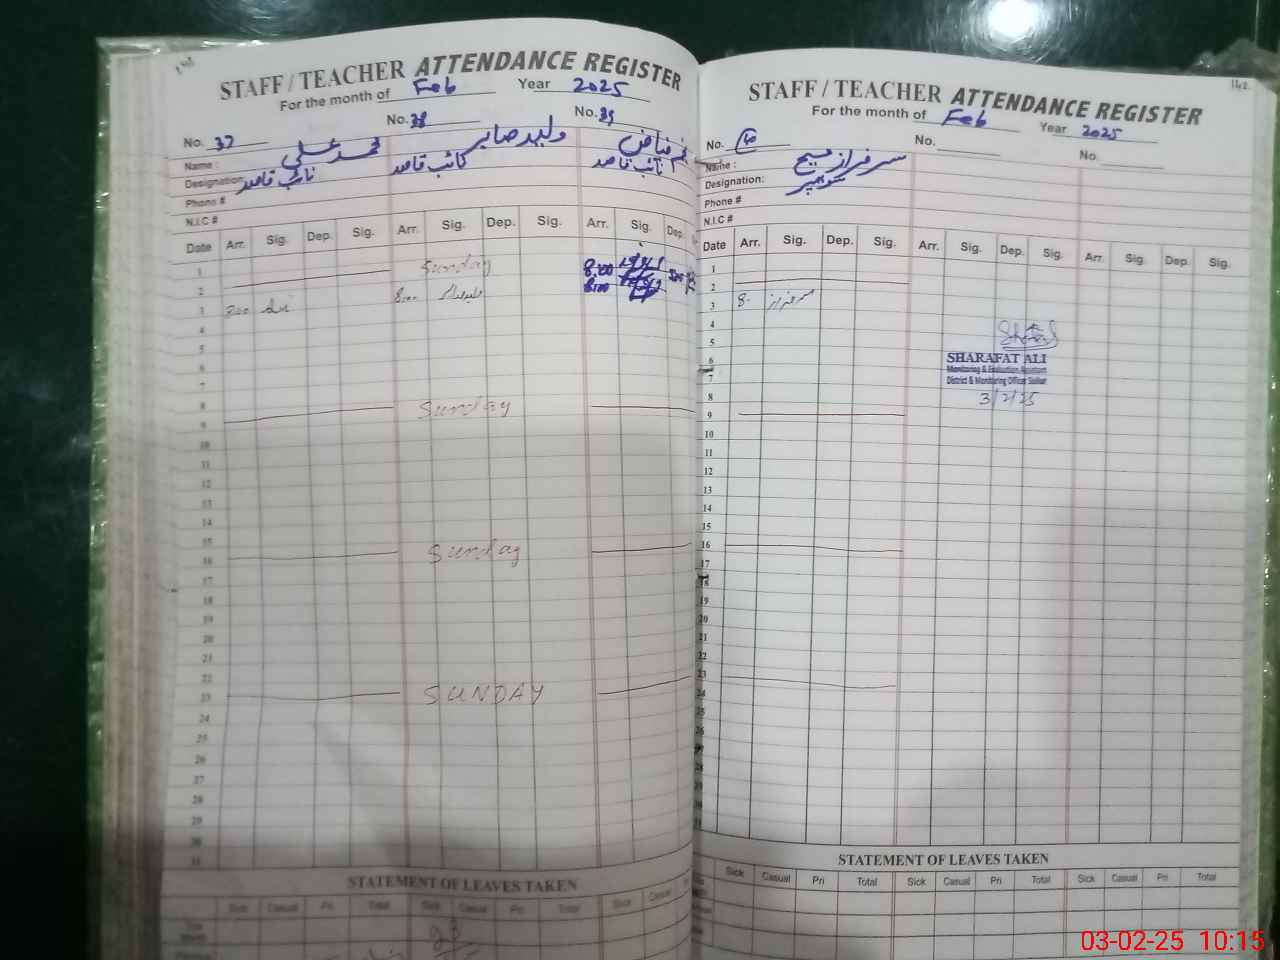 STAFF / TEACHER ATTENDANCE REGISTER
For the month of Feb Year 2025
No. 37 No. 38 No. 39
Name : محمد علی ولید صابر
Designation: نائب قاصد نائب قاصد نائب قاصد
Phone #
N.I.C #
Date Arr. Sig. Dep. Sig. Arr. Sig. Dep. Sig. Arr. Sig. Dep.
1 Sunday 8:00
2 8:00
3 8:00
4
5
6
7
8 Sunday
9
10
11
12
13
14
15
16 Sunday
17
18
19
20
21
22
23 SUNDAY
24
25
26
27
28
29
30
31
STATEMENT OF LEAVES TAKEN
Sick Casual Pri Total Sick Casual Pri Total Sick Casual
STAFF / TEACHER ATTENDANCE REGISTER
For the month of Feb Year 2025
No. 40 No. No.
Name : سرفراز مسیح
Designation: سویپر
Phone #
N.I.C #
Date Arr. Sig. Dep. Sig. Arr. Sig. Dep. Sig. Arr. Sig. Dep. Sig.
1
2
3 8- سرفراز
4
5
6
7
8
9
10
11
12
13
14
15
16
17
18
19
20
21
22
23
24
25
SHARAFAT ALI
Monitoring & Evaluation Assistant
District & Monitoring Officer
3/2/25
STATEMENT OF LEAVES TAKEN
Sick Casual Pri Total Sick Casual Pri Total Sick Casual Pri Total
03-02-25 10:15